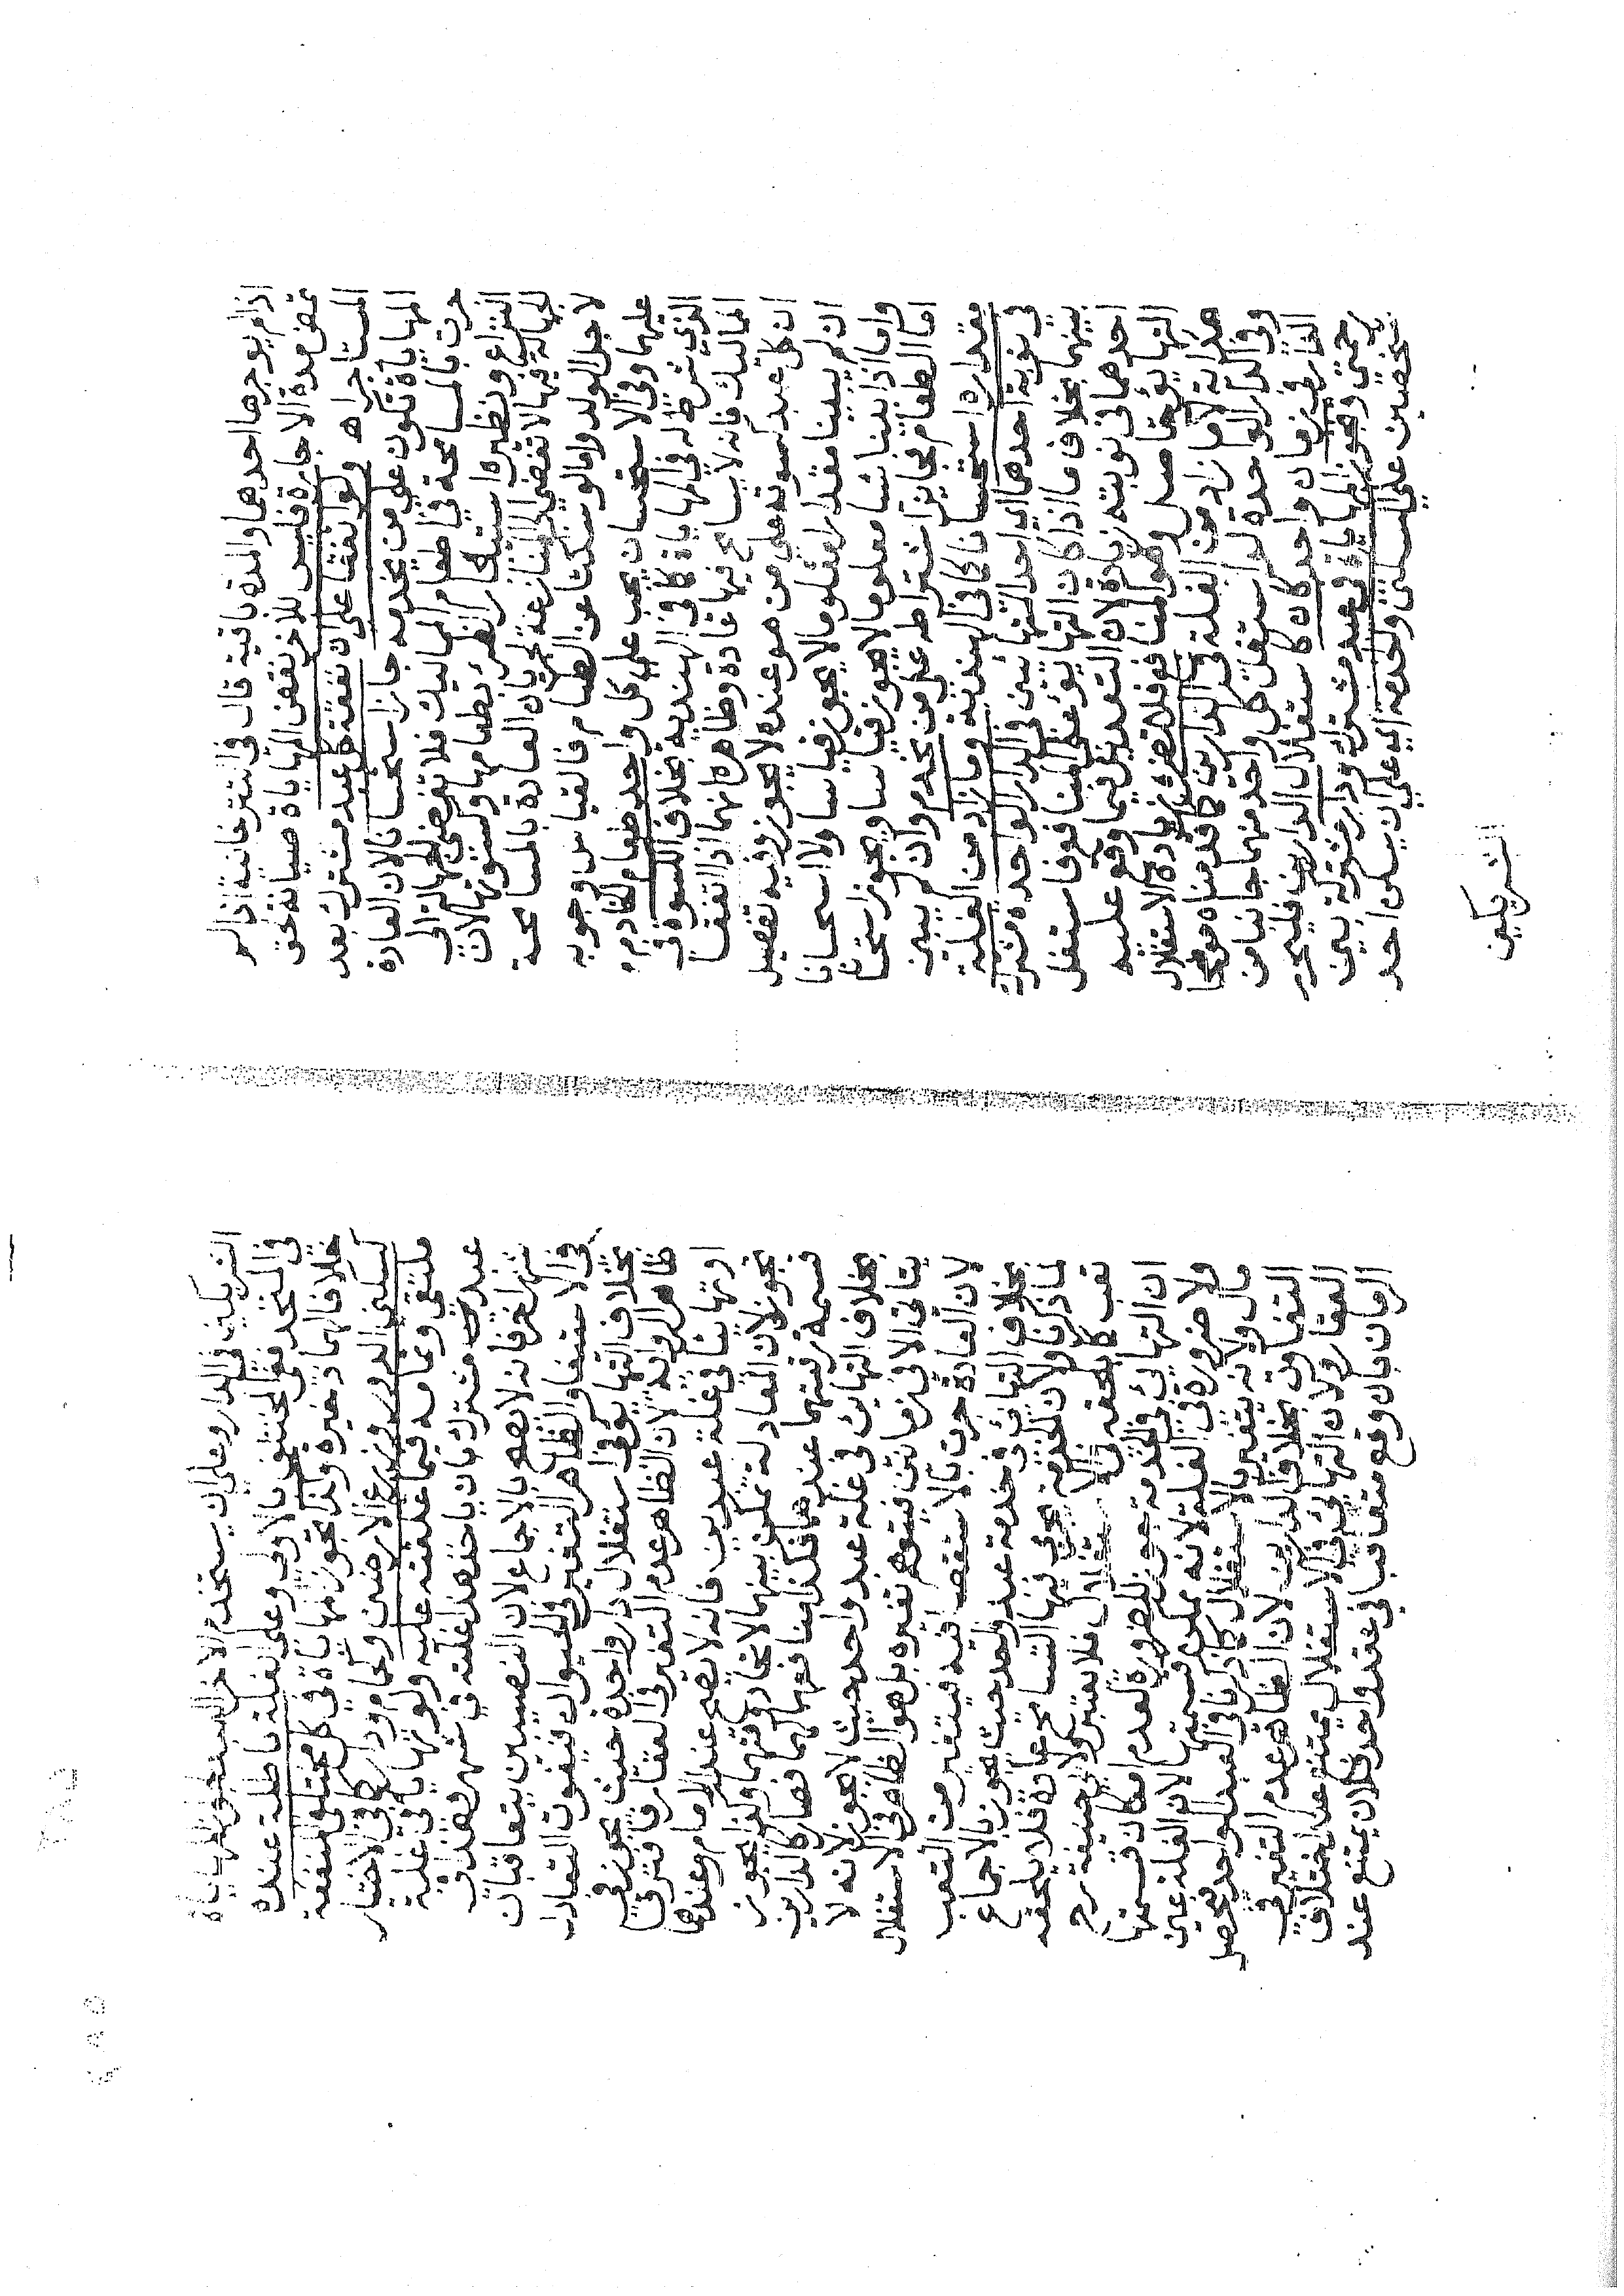 اذا لم يوجرها احدهما والمدة باقية قال في التترخانية اذا لم
تمض مدة الاجارة فليس للاخر نقض المهاياة صيانة لحق
المستاجر اه ولو اتفقا على ان نفقة كل عبد مشترك بعد
المهاياة تكون على من يخدمه جاز استحسانا لان العادة
جرت بالمسامحة في اطعام المماليك فلا تفضي الجهالة الى
النزاع ونظيره استيجار الظئر بطعامها وكسوتها لان
الجهالة فيها لا تفضي الى المنازعة لجريان العادة بالمسامحة
لاجل الولد وامالو سكتا عن الطعام فالقياس وجوبه
عليهما وفي الاستحسان يجب على كل واحد طعام الخادم
الذي شرط له في المهاياة كما في الهندية بخلاف الكسوة في
المماليك فانه لا يسامح فيها عادة وظاهره انهما اذا اتفقا
ان كل عبد كسوته على من هو عنده لا يجوز وفيه تفصيل
ان لم يبينا مقدارا معلوما لا يجوز قياسا ولا استحسانا
واما اذا بينا شيا معلوما لا يجوز قياسا ويجوز استحسانا
اما الطعام فجايز اشتراطه على من يخدم وان لم يبين
مقداره استحسانا كما في الهندية وما زاد من الغلة
في نوبة احدهما اي احد المتهايئين في الدار الواحدة مشترك
بينهما بخلاف ما اذا كان التهايؤ على المنافع فاستغل
احدهما في نوبته زيادة لان التعديل فيما وقع عليه
التهايؤ حاصل وهو المنافع فلا تضره زيادة الاستغلال
هداية لا ما زاد من الغلة في الدارين كما قدمناه موضحا
وفي الدار الواحدة لو استغل كل واحد منهما جانبا من
الدار في زمان واحد كان كاستغلال الدارين فليحرر
رحمتي وتجوز المهاياة في عبد مشترك ودار مشتركة بين
شخصين على السكنى والخدمة اي على ان يسكن احد
الشريكين
الشريكين في الدار وعلى ان يستخدم الاخر العبد تجوز المهاياة
في المتحد ففي المختلف بالاولى وعلى الغلة باطلة عنده
خلافا لهما ذخيرة وكذا تجوز المهاياة في كل مختلفي المنفعة
كسكنى الدور وزرع الارضين وكحمام ودار كما في الاختيار
ملتقى وتمامه فيما علقته عليه ولو تهايا في غلة
عبدين مشترك بان ياخذ هذا غلته في شهر وهذا في
شهر اخر فانه لا يصح بالاجماع لان النصيبين يتعاقبان
في الاستيفا والظاهر التغير في الحيوان فيفوت التعادل
بخلاف التهايؤ في استغلال دار واحدة حيث يجوز في
ظاهر الرواية لان الظاهر عدم التغير في العقار فافترقا
او تهايئا في غلة عبدين فانه لا يصح عند الامام وعندهما
يجوز لان المعادلة تمكن بينهما لاتحاد وقتهما وكذا يجوز
قسمة رقبتهما عندهما فكذا منافعهما فصار كالدارين
بخلاف التهايئ في غلة عبد واحد حيث لا يجوز لانه لا
يتاتى الا في زمانين فيتوهم تغيره بل هو الظاهر في الاستغلال
لان العادة جرت بالاستقصا فيه فيتغير من التعب
بخلاف التهايئ في خدمة عبد واحد حيث يجوز بالاجماع
لما ذكرنا ولان الخدمة يجري فيها التسامح عادة فلا يلحقه
تعب كما يلحقه في الاستغلال فلا يعتبر ولابي حنيفة رح
ان التهايئ في الخدمة جوز للضرورة لعدم امكان قسمتها
ولا ضرورة في الغلة لانه يمكن قسمتها لان الغلة عين
مال ولانه يتغير بالاستغلال كما ذكرنا في العبد الواحد فيحصل
التفاوت بخلاف الدارين لان الظاهر عدم التغير في
العقار ولان التهايئ في الاستغلال يمتنع عند اختلاف
الزمان بان وقع متعاقبا في عقد واحد فلان يمتنع عند